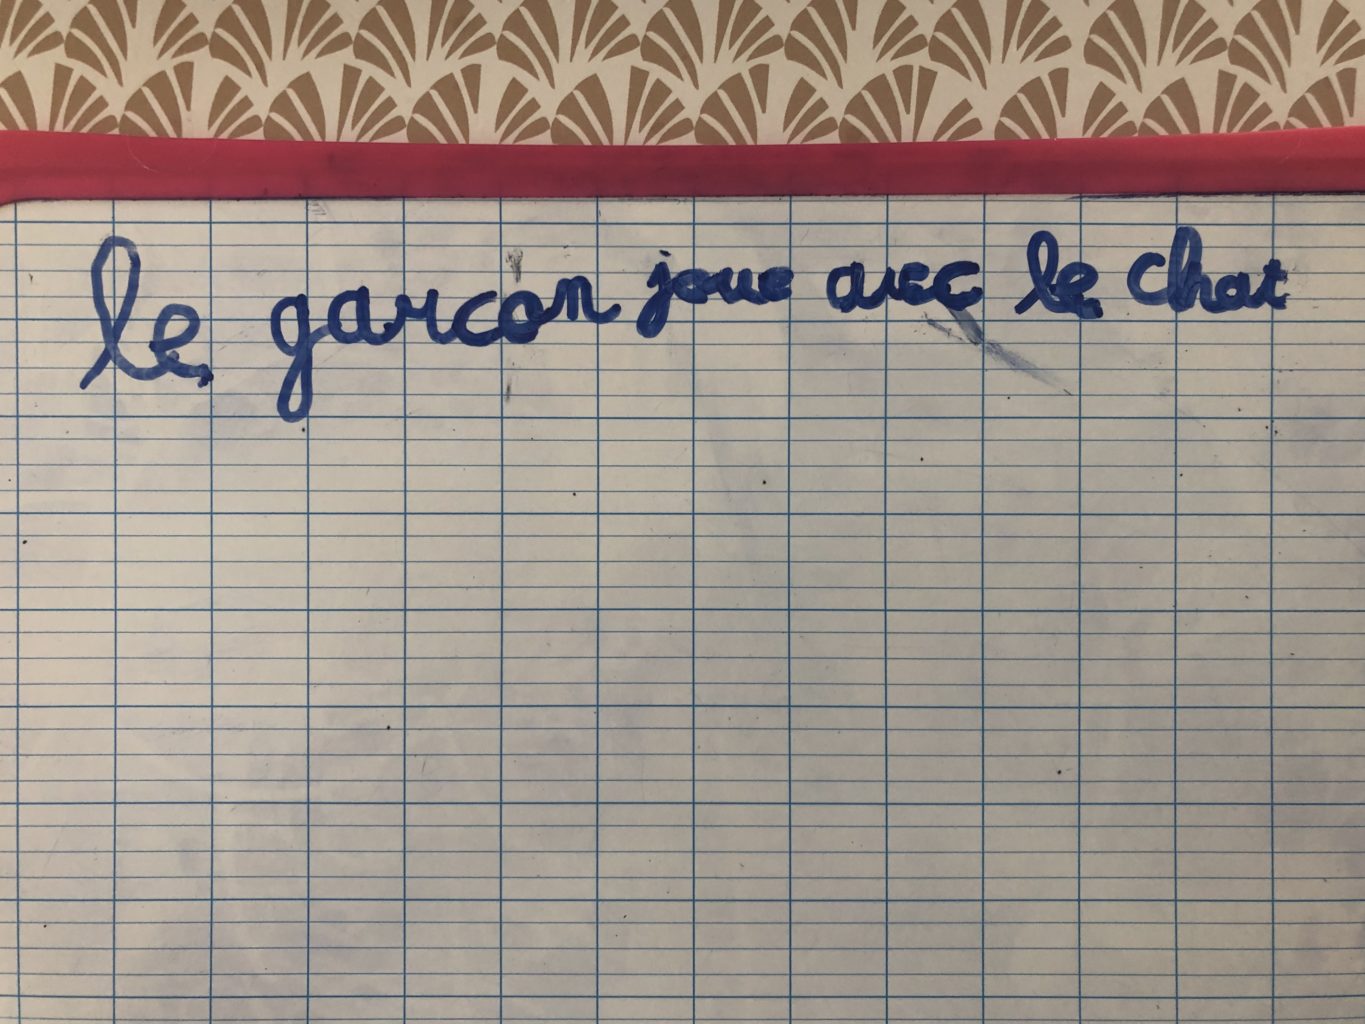 le garcon joue avec le chat